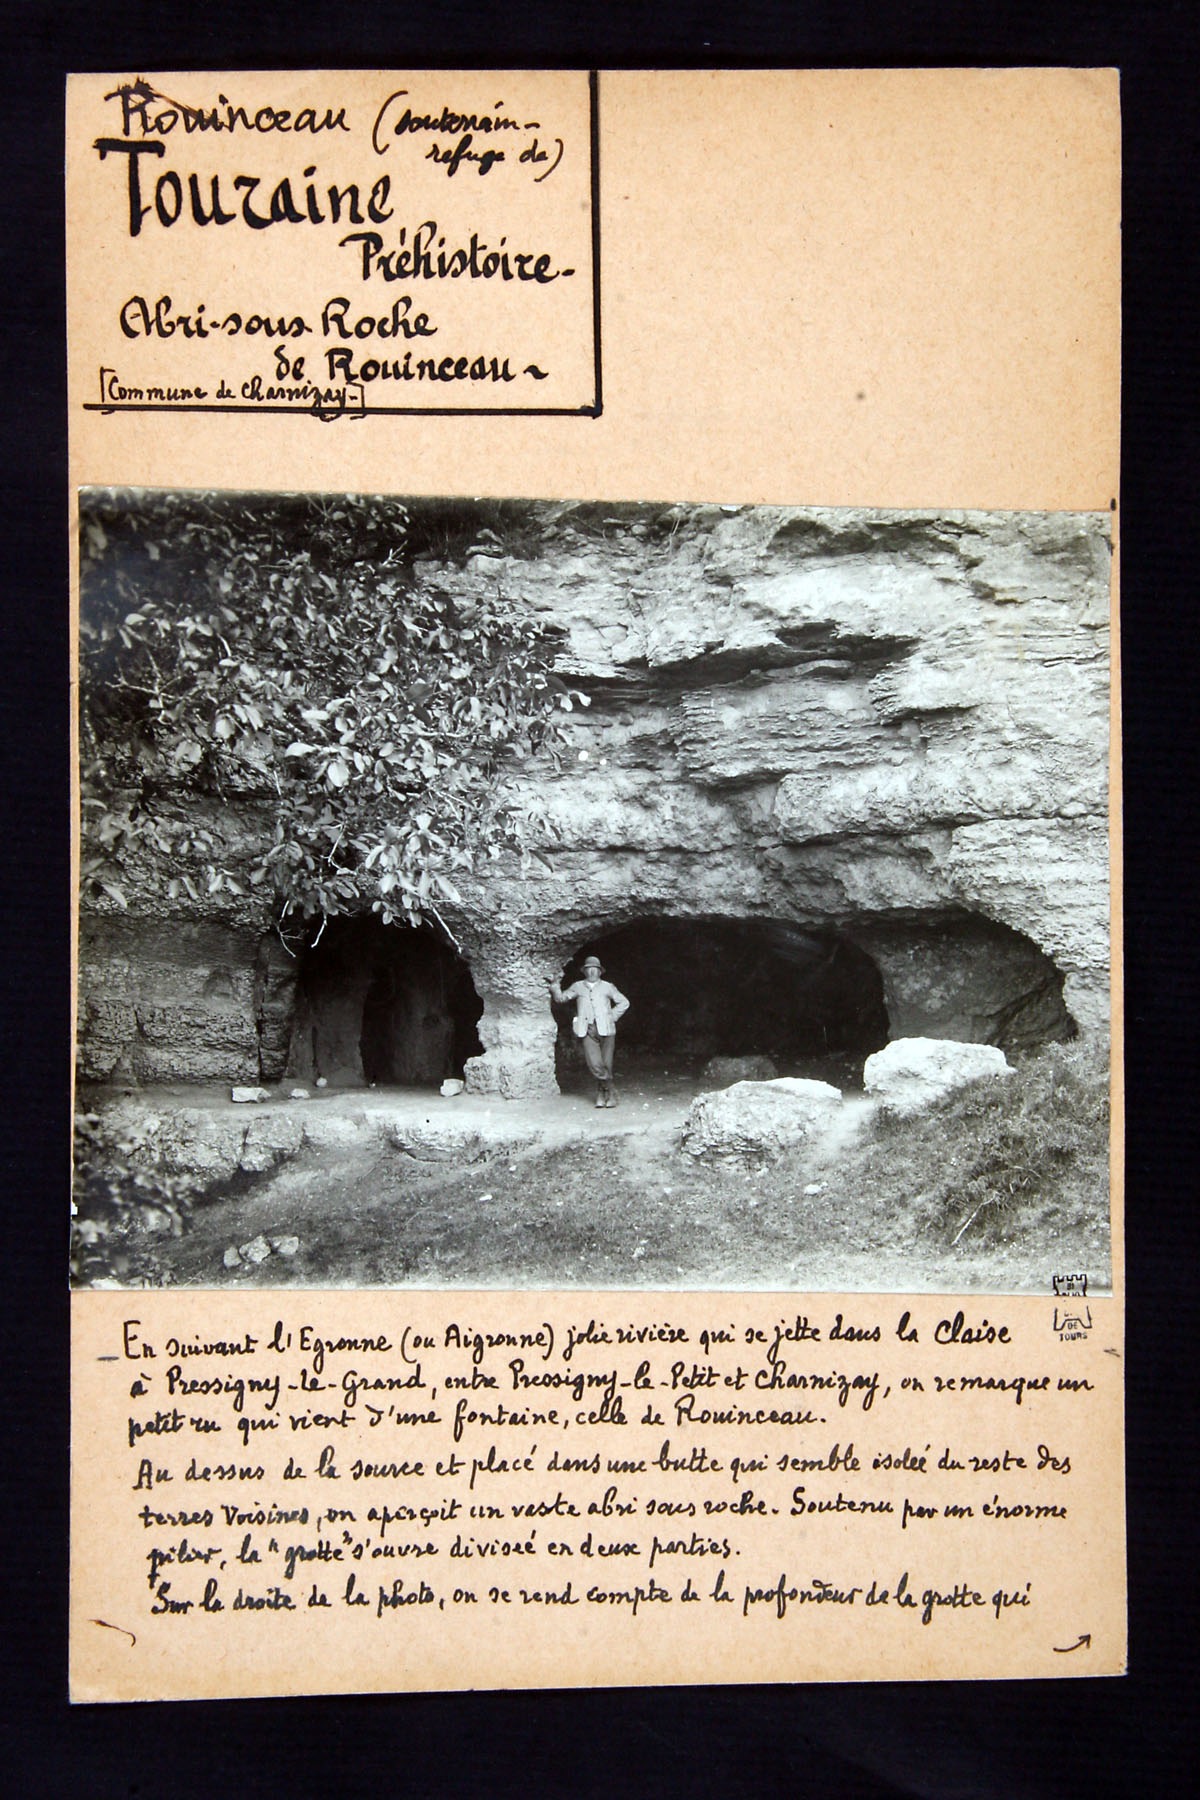 Rouinceau (souterrain-
refuge de)
Touraine
Préhistoire-
Abri-sous Roche
de Rouinceau-
[Commune de Charnizay-]
DE
TOURS
En suivant l'Egronne (ou Aigronne) jolie rivière qui se jette dans la Claise
à Pressigny-Le-Grand, entre Pressigny-le-Petit et Charnizay, on remarque un
petit ru qui vient d'une fontaine, celle de Rouinceau.
Au dessus de la source et placé dans une butte qui semble isoleé du reste des
terres Voisines, on aperçoit un vaste abri sous roche. Soutenu par un énorme
pilier, la "grotte" s'ouvre diviseé en deux parties.
Sur la droite de la photo, on se rend compte de la profondeur de la grotte qui